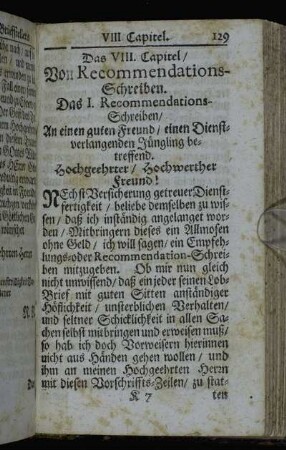 VIII Capitel. 129
Das VIII. Capitel/
Von Recommendations-
Schreiben.
Das I. Recommendations-
Schreiben/
An einen guten Freund/ einen Dienst-
verlangenden Jüngling be-
treffend.
Hochgeehrter/ Hochwerther
Freund!
NEchst Versicherung getreuer Dienst-
fertigkeit/ beliebe demselben zu wis-
sen/ daß ich inständig angelanget wor-
den/ Mitbringern dieses ein Allmosen
ohne Geld/ ich will sagen/ ein Empfeh-
lungs-oder Recommendation-Schrei-
ben mitzugeben. Ob mir nun gleich
nicht unwissend/ daß ein jeder seinen Lob-
Brief mit guten Sitten anständiger
Höflichkeit/ unsterblichen Verhalten/
und seltner Schicklichkeit in allen Sa-
chen selbst mitbringen und erweisen muß/
so hab ich doch Vorweisern hierinnen
nicht aus Händen gehen wollen/ und
ihn an meinen Hochgeehrten Herrn
mit diesen Vorschriffts-Zeilen/ zu stat-
K 7 ten